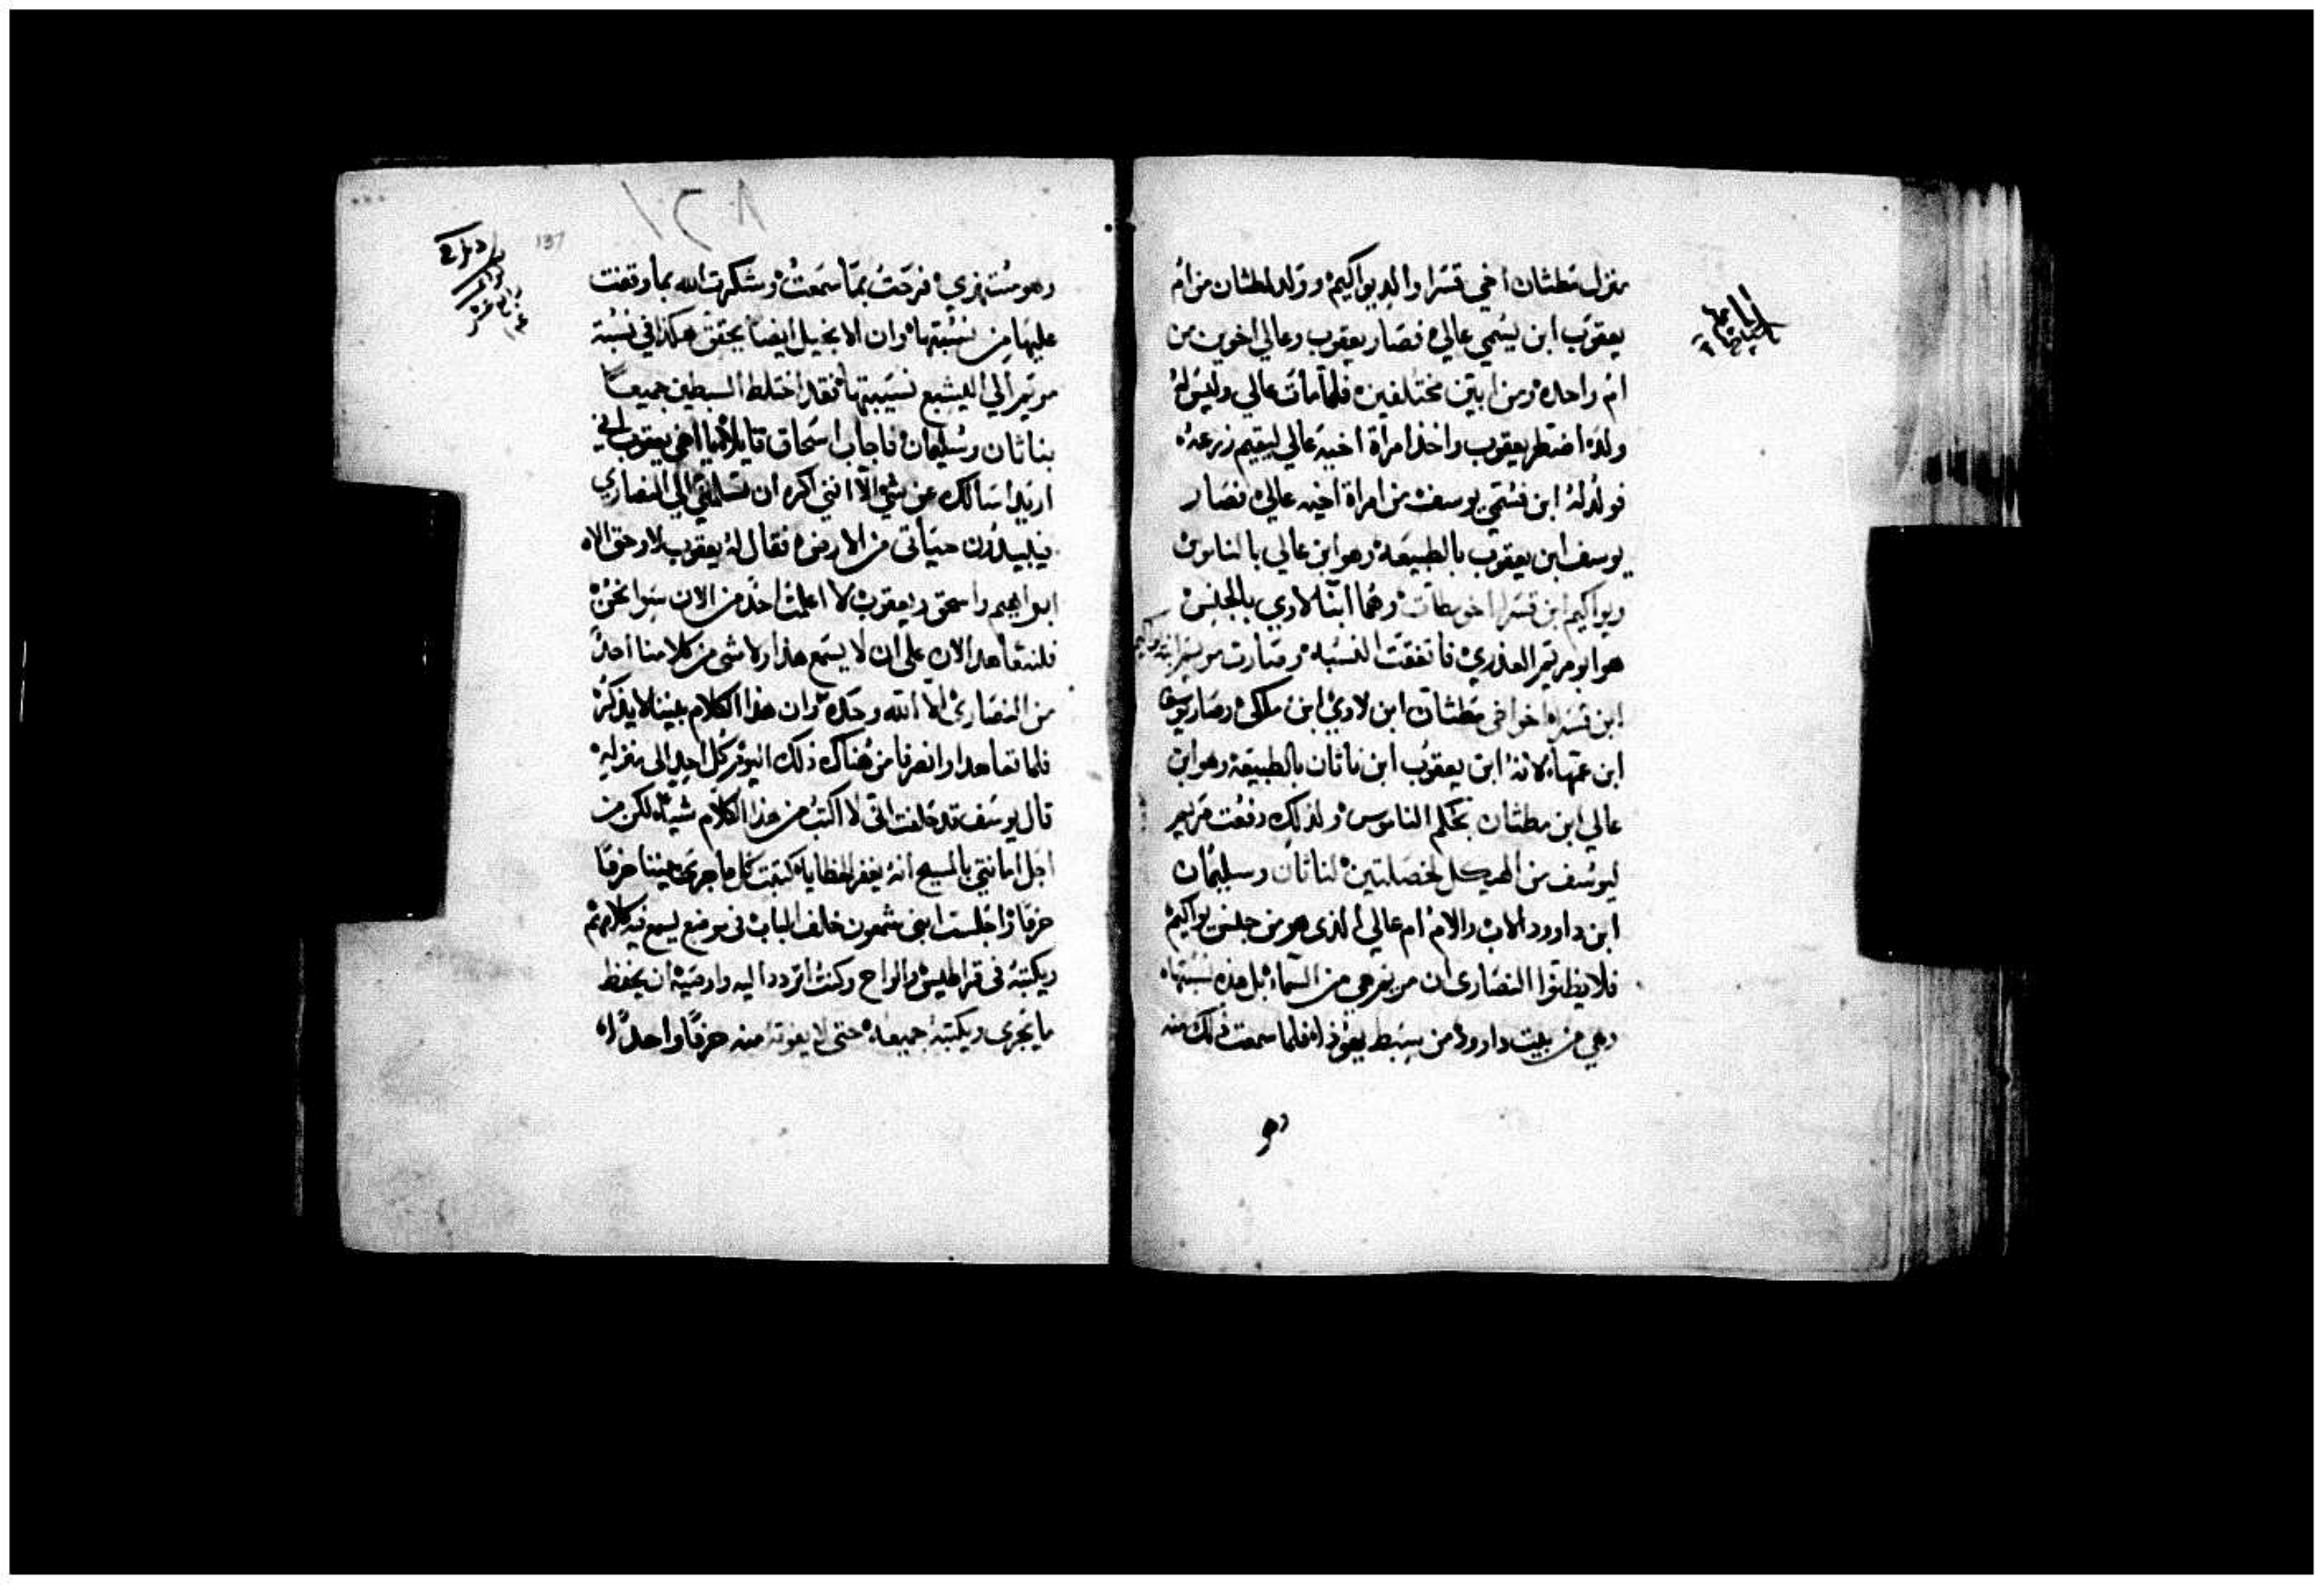 منزل مطثان اخي قسرا والد يواكيم وولد لمطثان من ام
يعقوب ابن يسمي عالي فصار يعقوب وعالي اخوين من
ام واحده ومن ابين مختلفين فلما مات عالي وليس له
ولد اضطر يعقوب واخذ امراة اخيه عالي ليقيم زرعه
فولد له ابن فسمي يوسف من امراة اخيه عالي فصار
يوسف ابن يعقوب بالطبيعه وهو ابن عالي بالناموس
ويواكيم ابن قسرا اخو مطثان وهما ابنا لاوي بالجنس
هو ابو مريم العذري فاتفقت النسبه وصارت مريم ابنة يواكيم
ابن قسرا اخو اخي مطثان ابن لاوي ابن ملكي وصار يوسف
ابن عمها لانه ابن يعقوب ابن ناثان بالطبيعة وهو ابن
عالي ابن مطثان بحكم الناموس ولذلك دفعت مريم
ليوسف من الهيكل لخصلتين لناثان وسليمان
ابن داوود الاب والام ام عالي الذى هو من جنس يواكيم
فلا يظنوا النصارى ان مريم هي من السماء بل هذه نسبتها
وهي من بيت داوود من سبط يهوذا فلما سمعت ذلك منه
وهو
137
وهو مستهزي فرحت بما سمعت وشكرت الله بما وقفت
عليها من نسبتها وان الانجيل ايضا يحقق هكذا في نسبة
مريم الي اليشبع نسيبتها فقد اختلط السبطين جميعا
بناثان وسليمان فاجاب اسحاق قايلا يا اخي يعقوب انى
اريد اسالك عن شي الا انني اكره ان تسلمني الي النصاري
فيبيدون حياتى من الارض فقال له يعقوب لا وحق الاه
ابراهيم واسحق ويعقوب لا اعلمت احد من الان سوا نحن
فلنتعاهد الان على ان لا يسمع هذا ولا شى من كلامنا احد
من النصارى الا الله وحده وان هذا الكلام بيننا لا يذكر
فلما تعاهدا وانصرفا من هناك ذلك اليوم كل احد الى منزله
قال يوسف قد حلفت انى لا اكتب من هذا الكلام شيا لكن من
اجل امانتي بالمسيح انه يغفر الخطايا كتبت كل ما جرى بيننا حرفا
حرفا واجلست ابنى شمعون خلف الباب فى موضع يسمع فيه كلامهم
ويكتبه فى قراطيس والواح وكنت اتردد اليه واوصيه ان يحفظ
ما يجرى ويكتبه جميعه حتى لا يفوته منه حرفا واحدا